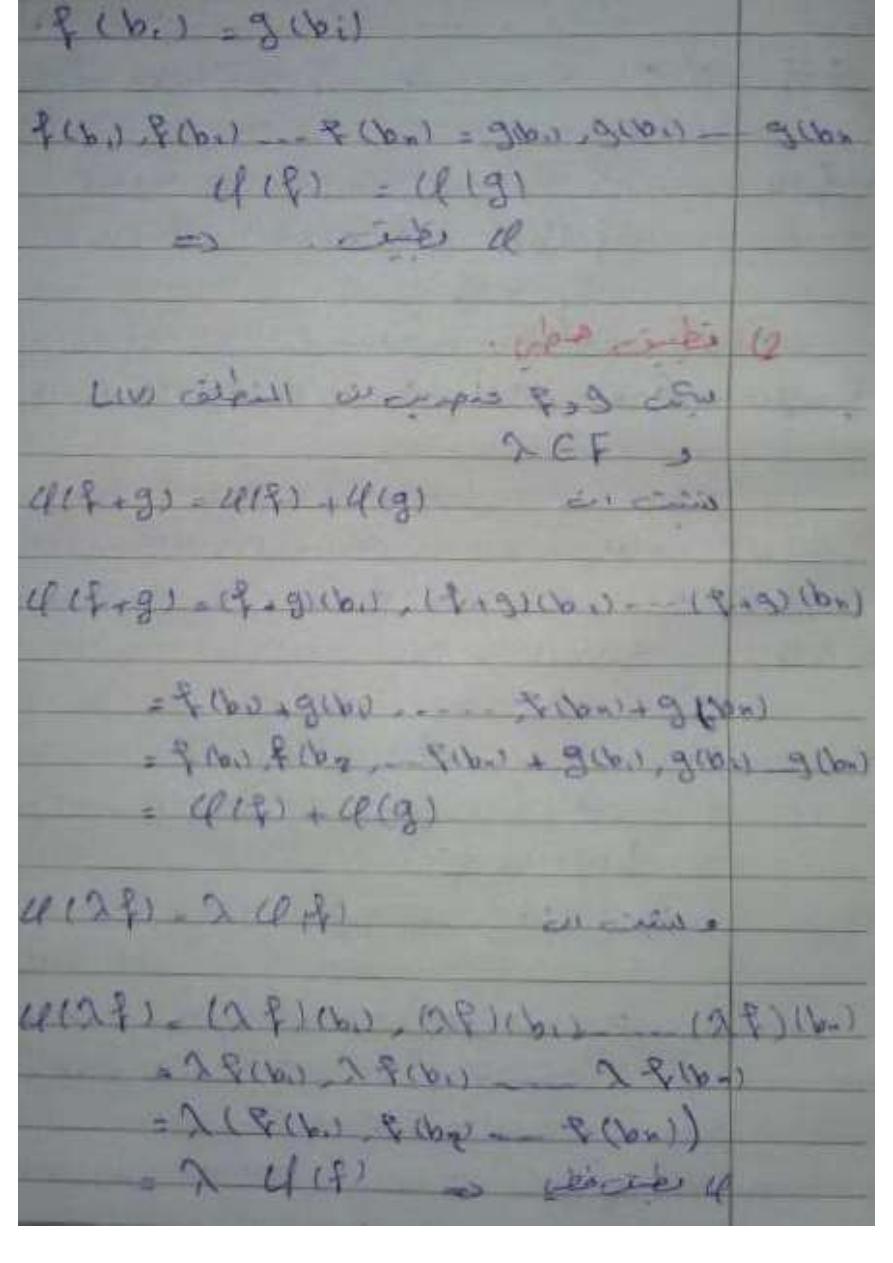 f(bᵢ) = g(bᵢ)
f(b₁), f(b₂) ... f(bₙ) = g(b₁), g(b₂) ... g(bₙ
φ(f) = φ(g)
φ تطبيق ⇐
2) تطبيق خطي.
ليكن f و g عنصرين من المنطلق L(V)
و λ ∈ F
لنثبت ان φ(f+g) = φ(f) + φ(g)
φ(f+g) = (f+g)(b₁), (f+g)(b₂) ... (f+g)(bₙ)
= f(b₁) + g(b₁) ......, f(bₙ) + g(bₙ)
= f(b₁), f(b₂, ... f(bₙ) + g(b₁), g(b₂) ... g(bₙ)
= φ(f) + φ(g)
و لنثبت ان φ(λf) = λ φ(f)
φ(λf) = (λf)(b₁), (λf)(b₂) ...... (λf)(bₙ)
= λf(b₁), λf(b₂) ...... λf(bₙ)
= λ(f(b₁), f(b₂) ... f(bₙ))
= λ φ(f) ⇐ φ تطبيق خطي